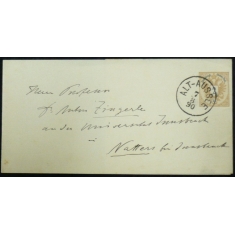 Herrn Professor
Dr Anton Zingerle
an der Universität Innsbruck
in
Natters bei Innsbruck
ALT-AUSSEE
7
8
90